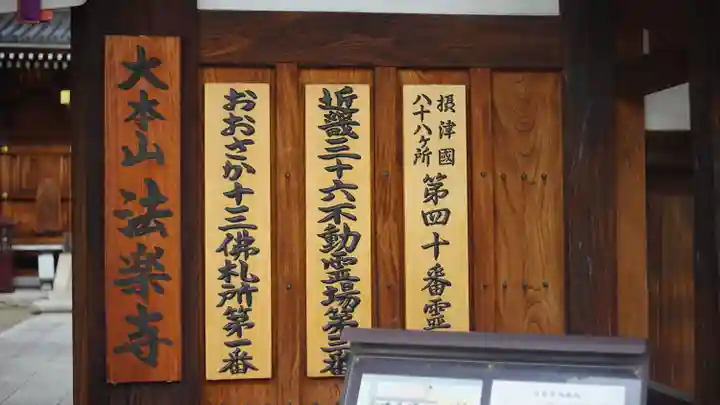 摂津國
八十八ヶ所
第四十番霊
近畿三十六不動霊場第三番
おおさか十三佛札所第一番
大本山 法楽寺